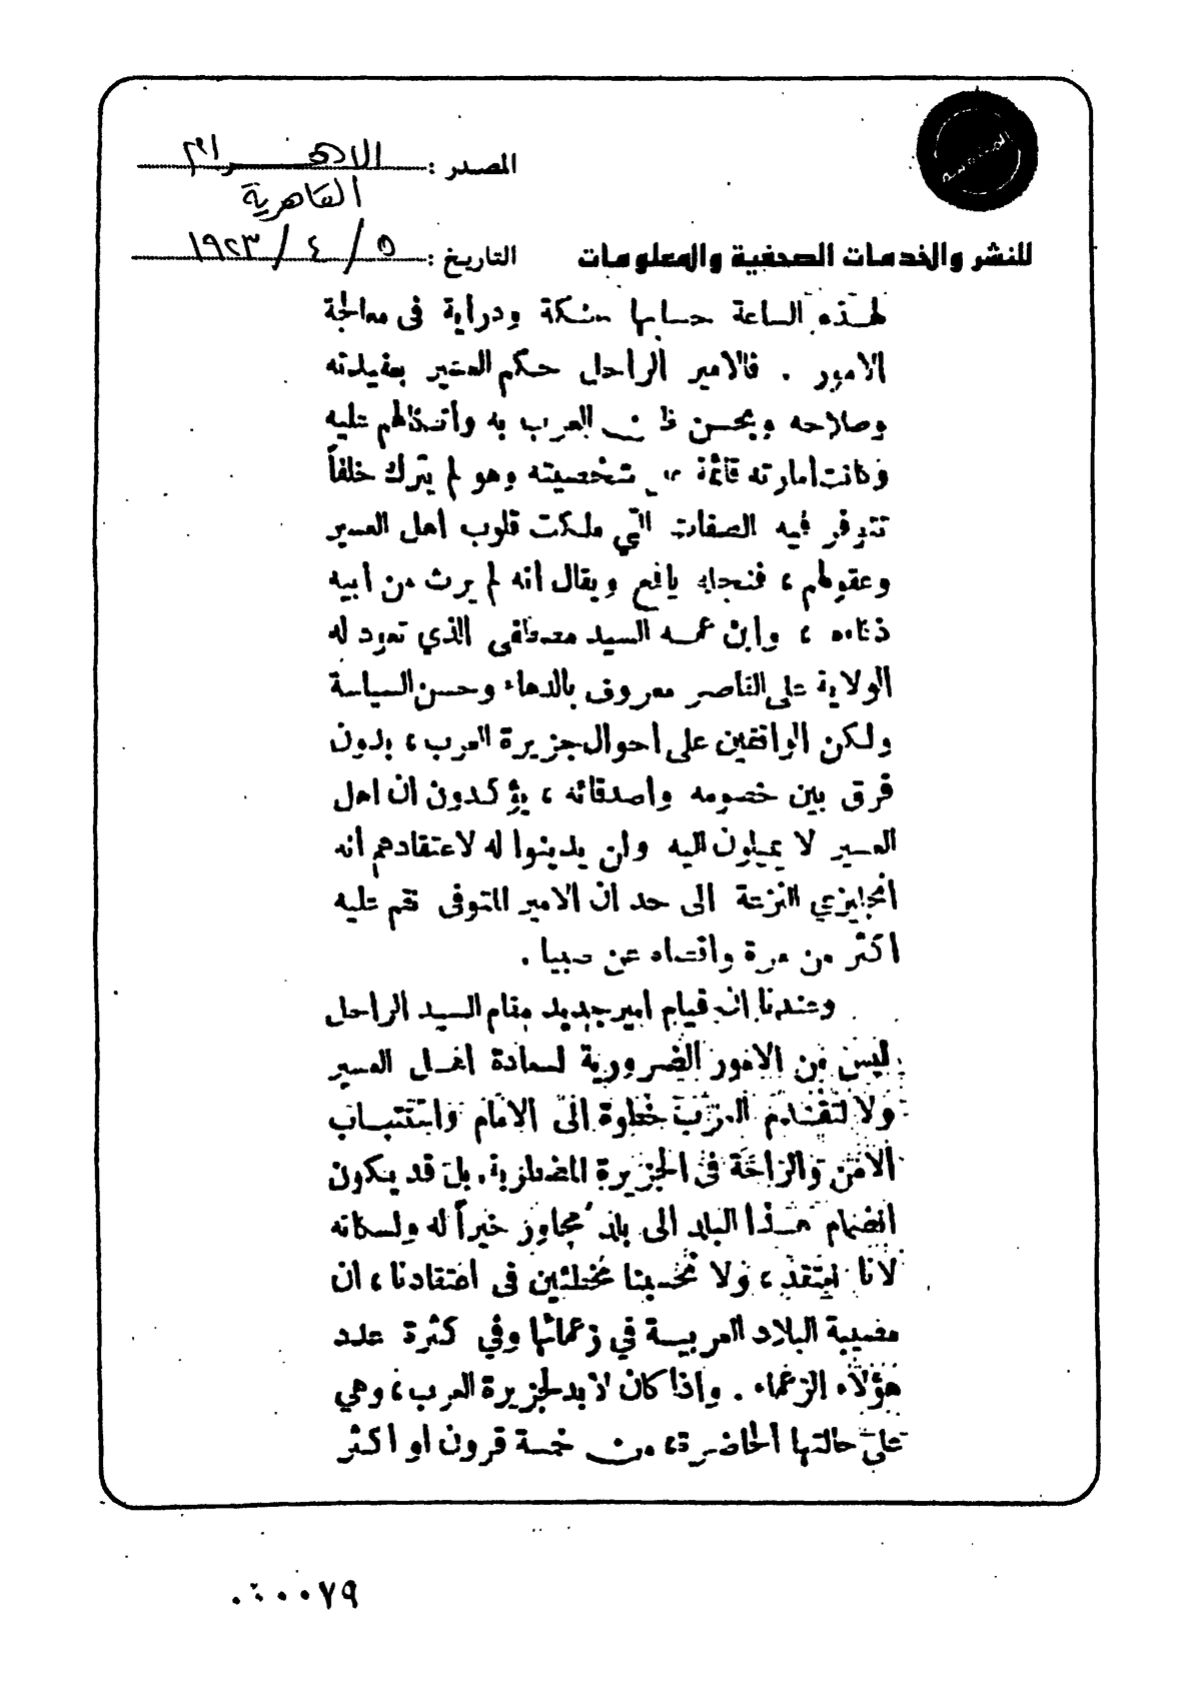 المصدر : الاهرام
القاهرية
للنشر والخدمات الصحفية والمعلومات
التاريخ : ٥ / ٤ / ١٩٢٣
لهذه الساعة حسابها بحنكة ودراية فى معالجة
الامور . فالامير الراحل حكم العسير بعقيدته
وصلاحه وبحسن ظن العرب به واتكالهم عليه
وكانت امارته قائمة على شخصيته وهو لم يترك خلفاً
تتوفر فيه الصفات التي ملكت قلوب اهل العسير
وعقولهم ، فنجله يافع ويقال انه لم يرث من ابيه
ذكاءه ، وابن عمه السيد مصطفى الذي تعود له
الولاية على الناصر معروف بالدهاء وحسن السياسة
ولكن الواقفين على احوال جزيرة العرب ، بدون
فرق بين خصومه واصدقائه ، يؤكدون ان اهل
العسير لا يميلون اليه ولن يدينوا له لاعتقادهم انه
انجليزي النزعة الى حد ان الامير المتوفى نقم عليه
اكثر من مرة واقصاه عن صبيا .
وعندنا ان قيام امير جديد مقام السيد الراحل
ليس من الامور الضرورية لسعادة اهل العسير
ولا لتقدم العرب خطوة الى الامام واستتباب
الامن والراحة فى الجزيرة المضطربة . بل قد يكون
انضمام هذا البلد الى بلد مجاور خيراً له ولسكانه
لانا نعتقد ، ولا نحسبنا مخطئين فى اعتقادنا ، ان
مصيبة البلاد العربية في زعمائها وفي كثرة عدد
هؤلاء الزعماء . واذا كان لا بد لجزيرة العرب ، وهي
على حالتها الحاضرة ، من خمسة قرون او اكثر
٧٩